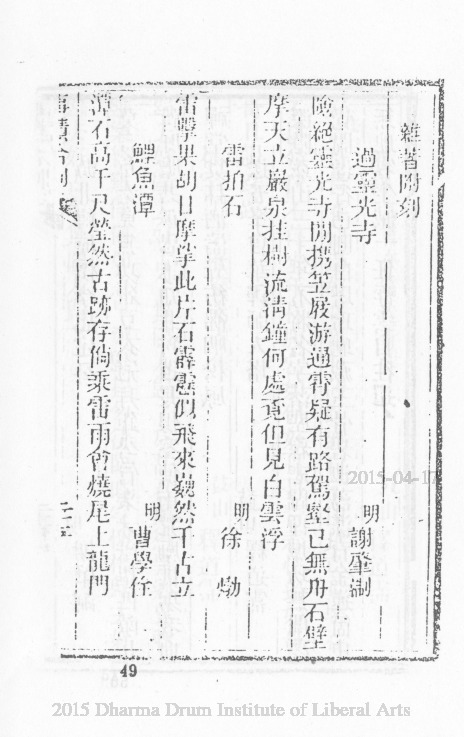 雜著附刻
過靈光寺
明 謝肇淛
險絕靈光寺閒携笠屐游通霄疑有路駕壑已無舟石壁
摩天立巖泉挂樹流清鐘何處覓但見白雲浮
雷拍石
明 徐𤊹
雷擊果胡日摩挲此片石霹靂似飛來巍然千古立
鯉魚潭
明 曹學佺
潭石高千尺瑩然古跡存倘乘雷雨會燒尾上龍門
49
2015-04-17
2015 Dharma Drum Institute of Liberal Arts